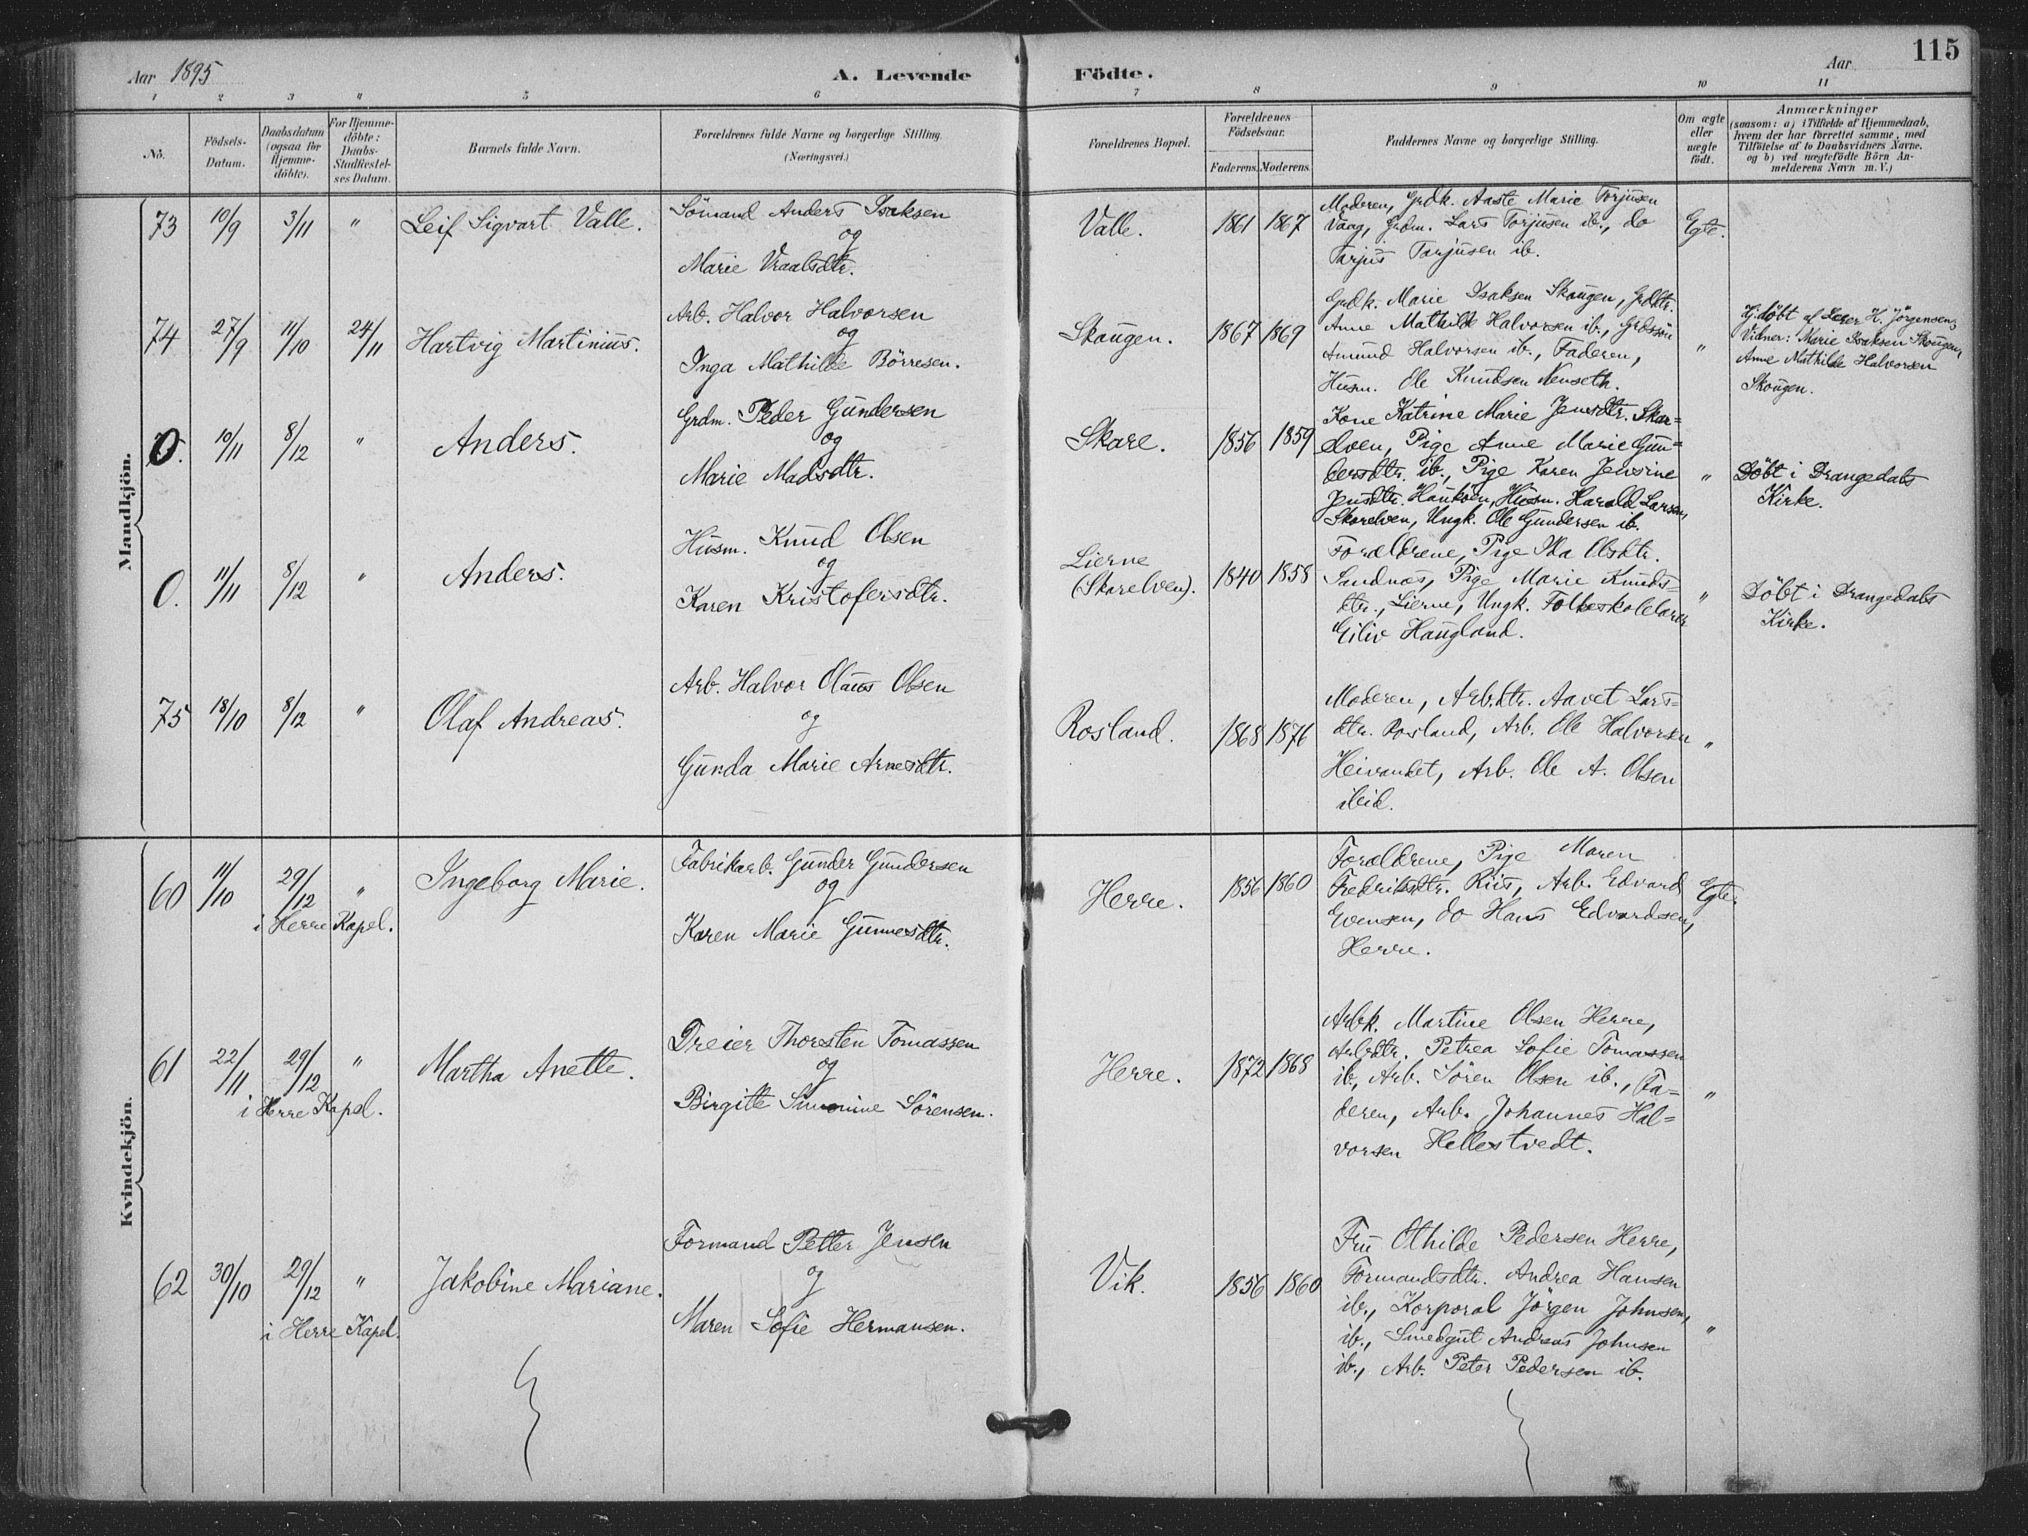 Aar 1895
A. Levende
Födte.
Aar
115
1 2 3 " 5 6 7 8 9 10 11
No.
Födsels-
Datum.
Daabsdatum
(ogsaa for
Hjemme-
döbte).
For Hjemme-
döbte:
Daabs-
Stadfæstel-
ses Datum.
Barnets fulde Navn.
Forældrenes fulde Navne og borgerlige Stilling.
(Næringsvei.)
Forældrenes Bopæl.
Forældrenes
Födselsaar.
Faderens. Moderens.
Faddernes Navne og borgerlige Stilling.
Om ægte
eller
uægte
födt.
Anmærkninger
(saasom: a) i Tilfælde af Hjemmedaab,
hvem der har forrettet samme, med
Tilföielse af to Daabsvidners Navne.
og b) ved uægtefödte Börn An-
melderens Navn m. V.)
Mandkjön.
73 10/9 3/11 " Leif Sigvart Valle.
Sömand Anders Isaksen
og
Marie Vraalsdtr.
Valle. 1861 1867
Moderen, Grdk. Aaste Marie Torjusen
Vaag, Grdm. Lars Torjusen ib., do
Tarjus Tarjusen ib.
Egte.
74 27/9 11/10 24/11 Hartvig Martinius.
Arb. Halvor Halvorsen
og
Inga Mathilde Börresen.
Skougen. 1867 1869
Grdk. Marie Isaksen Skougen, Grdktr.
Anne Mathilde Halvorsen ib., Grdssön
Amund Halvorsen ib., Faderen,
Husm. Ole Knudsen Nenseth.
"
Hj.döbt af Lærer H. Jörgensen;
Vidner: Marie Isaksen Skougen,
Anne Mathilde Halvorsen
Skougen.
0. 10/11 8/12 " Anders.
Grdm. Peder Gundersen
og
Marie Madsdtr.
Skare. 1856 1859
Kone Katrine Marie Jensdtr. Skar-
elven, Pige Anne Marie Gun-
dersdtr. ib., Pige Karen Jensine
Jensdtr. Haukven, Husm. Harald Larsen,
Skarelven, Ungk. Ole Gundersen ib.
"
Döbt i Drangedals
Kirke.
0. 11/11 8/12 " Anders.
Husm. Knud Olsen
og
Karen Kristofersdtr.
Lierne
(Skarelven). 1840 1858
Forældrene, Pige Ida Olsdtr.
Sandnæs, Pige Marie Knuds-
dtr., Lierne, Ungk. Folkeskolelærer
Eiliv Haugland.
"
Döbt i Drangedals
Kirke.
75 18/10 8/12 " Olaf Andreas.
Arb. Halvor Olaus Olsen
og
Gunda Marie Arnesdtr.
Rosland. 1868 1876
Moderen, Arb.dtr. Aavet Lars-
dtr. Rosland, Arb. Ole Halvorsen
Heivandet, Arb. Ole A. Olsen
ibid.
"
Kvindekjön.
60 11/10 29/12 " Ingeborg Marie.
i Herre Kapel.
Fabrikarb. Gunder Gundersen
og
Karen Marie Gunnesdtr.
Herre. 1856 1860
Forældrene, Pige Maren
Fredriksdtr. Riis, Arb. Edvard
Evensen, do Hans Edvardsen,
Herre.
Egte.
61 22/11 29/12 " Martha Anette.
i Herre Kapel.
Dreier Thorsten Tomassen
og
Birgitte Simonine Sörensen.
Herre. 1872 1868
Arbk. Martine Olsen Herre,
Arbdtr. Petrea Sofie Tomassen
ib, Arb. Sören Olsen ib., Fa-
deren, Arb. Johannes Hal-
vorsen Hellestvedt.
"
62 30/10 29/12 " Jakobine Mariane.
i Herre Kapel.
Formand Petter Jensen
og
Maren Sofie Hermansen.
Vik. 1856 1860
Fru Othilde Pedersen Herre,
Formandsdtr. Andrea Hansen
ib., Korporal Jörgen Johnsen,
ib., Smedgut Andreas Johnsen
ib., Arb. Peter Pedersen ib.
"